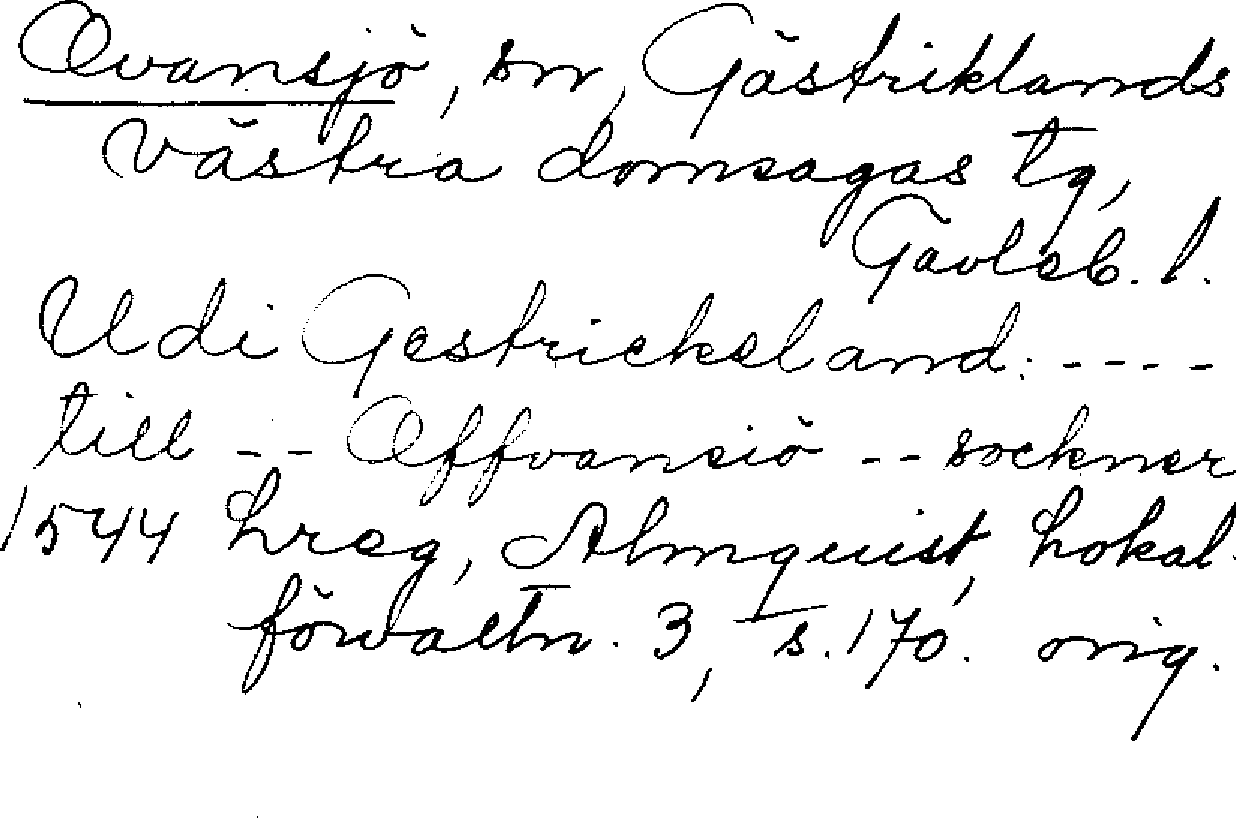 Ovansjö, sn, Gästriklands
västra domsagas tg,
Gävleb. l.
Udi Gestrickeland: ----
till -- Offvansiö -- sockner
1544 Lreg, Almquist, Lokal-
förvaltn. 3, s. 170. orig.